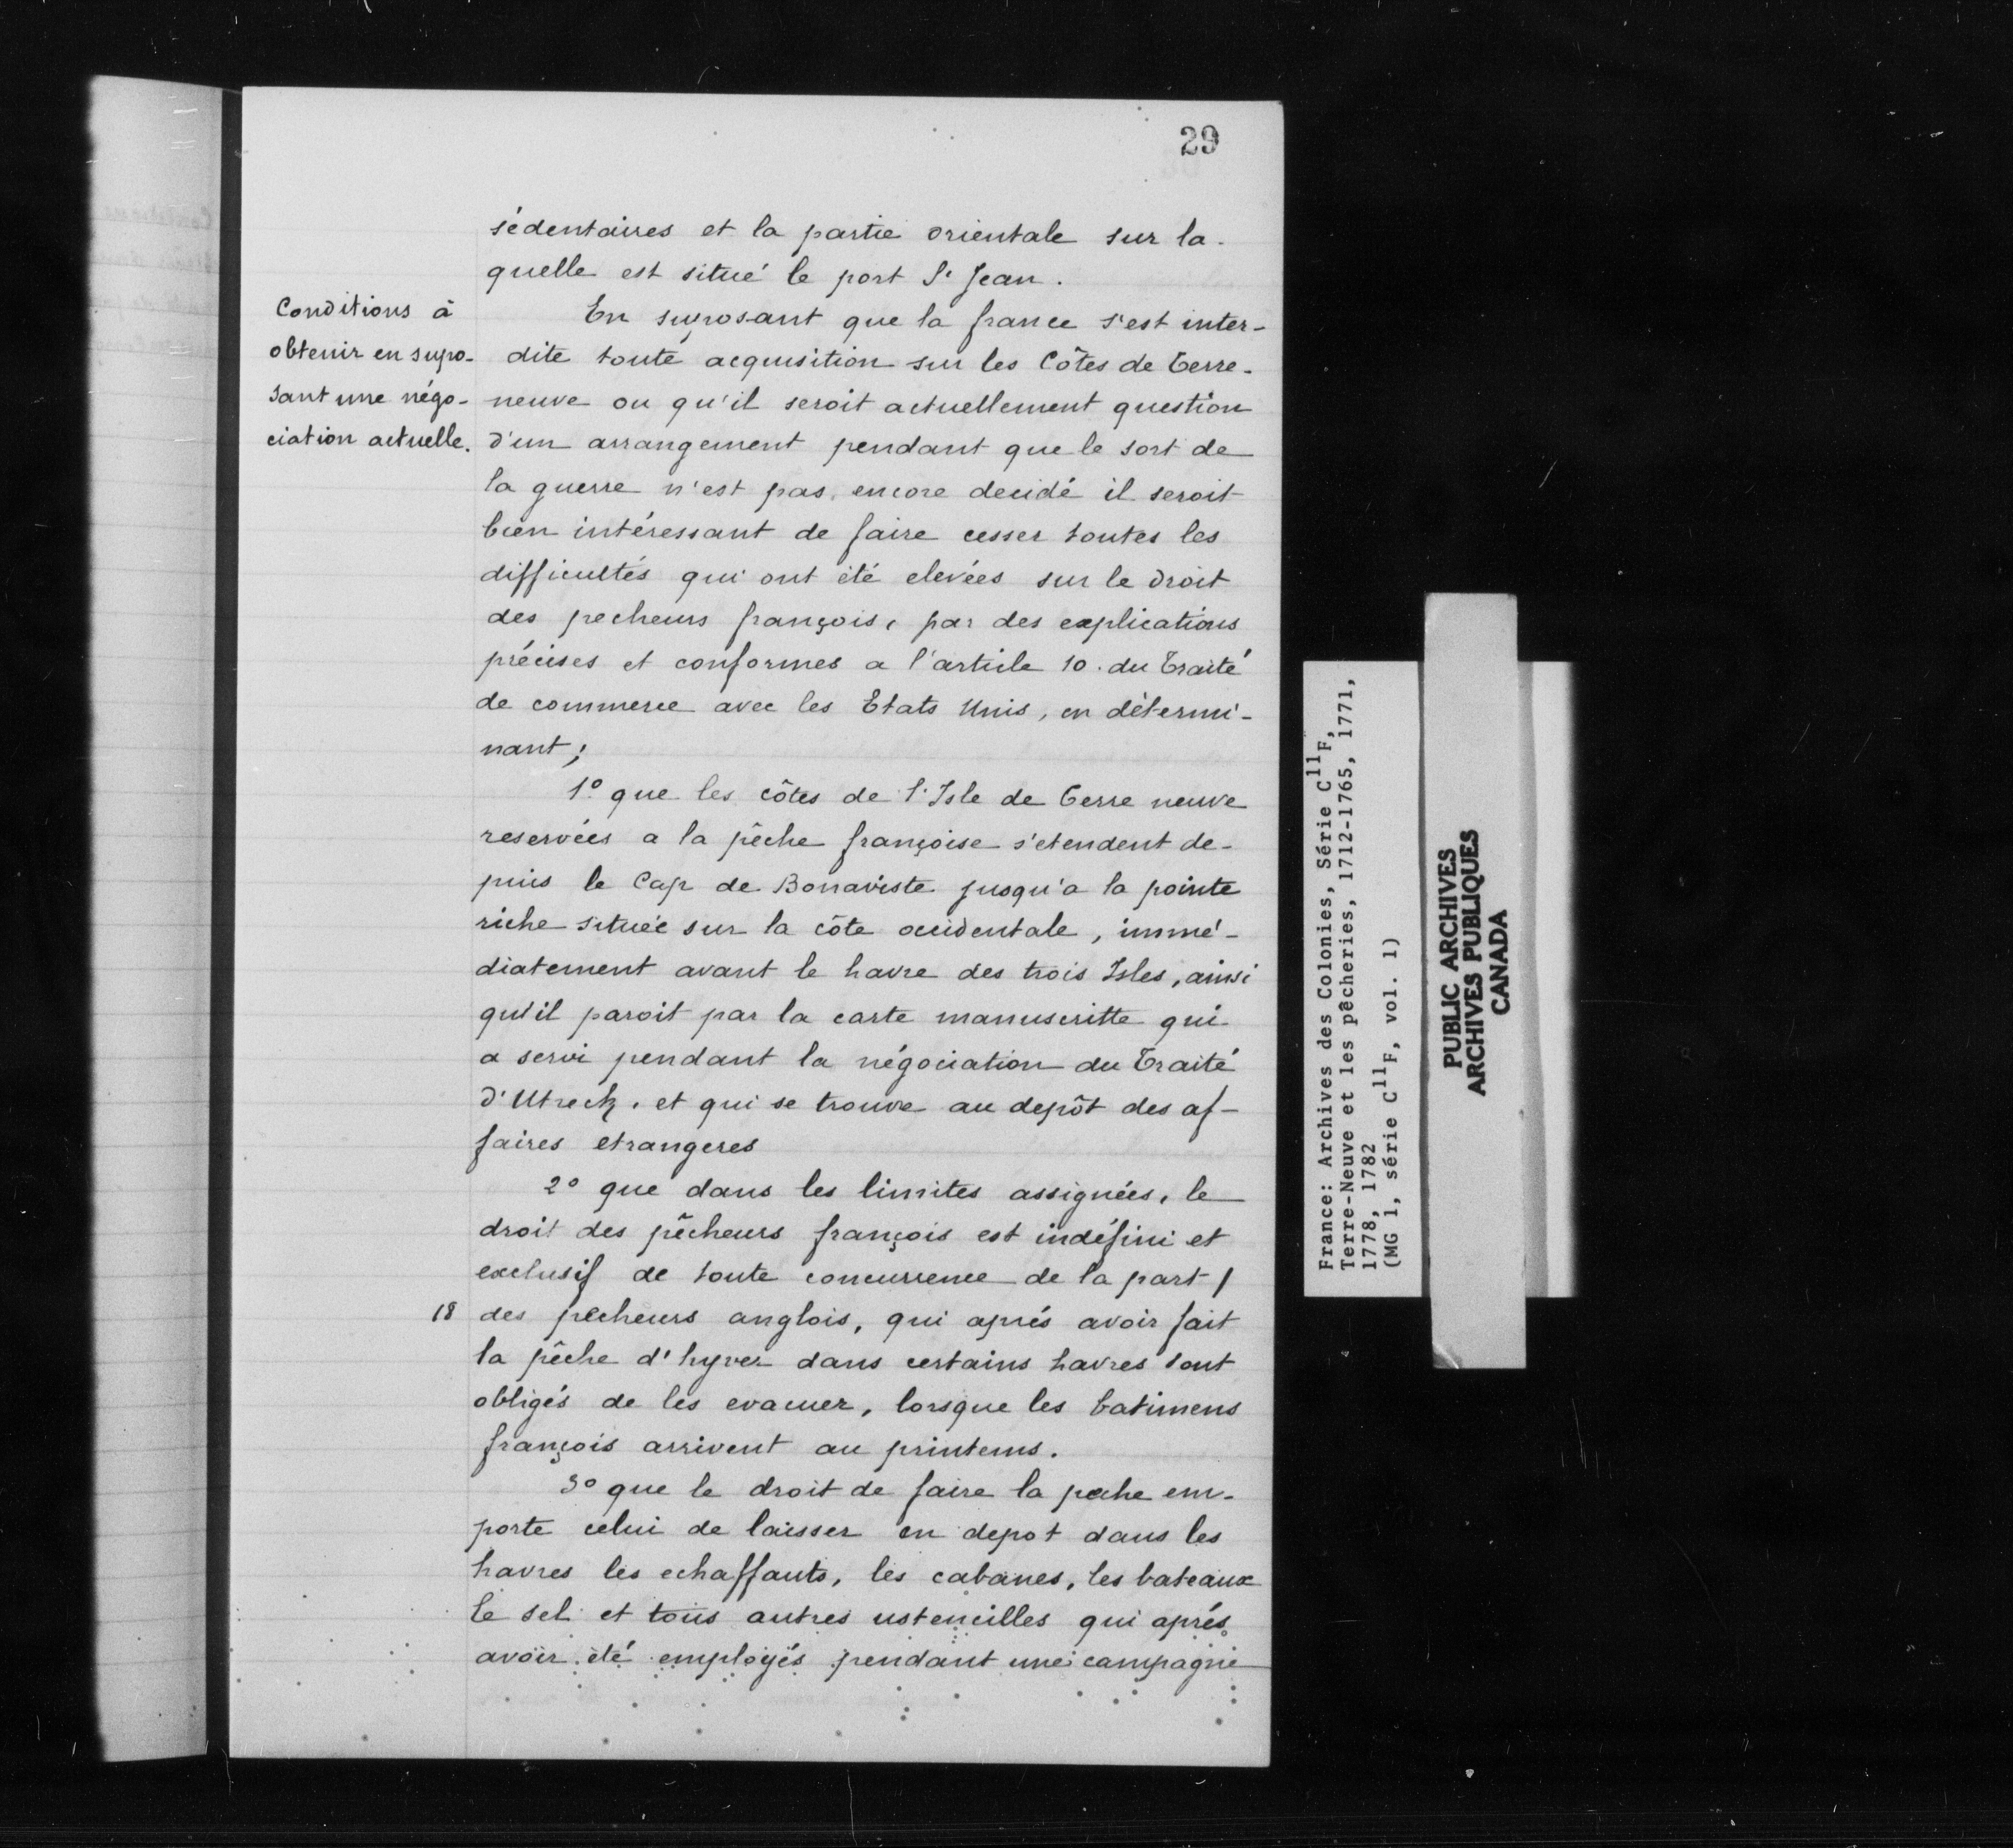 29
sédentaires et la partie orientale sur la-
quelle est situé le port St Jean.
Conditions à
obtenir en supo-
sant une négo-
ciation actuelle.
En suposant que la france s'est inter-
dite toute acquisition sur les Côtes de Terre-
neuve ou qu'il seroit actuellement question
d'un arrangement pendant que le sort de
la guerre n'est pas encore decidé il seroit
bien intéressant de faire cesser toutes les
difficultés qui ont été elevées sur le droit
des pecheurs françois, par des explications
précises et conformes a l'article 10. du Traité
de commerce avec les Etats Unis, en détermi-
nant;
1º que les côtes de l'Isle de Terre neuve
reservées a la pêche françoise s'etendent de-
puis le Cap de Bonaviste jusqu'a la pointe
riche située sur la côte occidentale, immé-
diatement avant le havre des trois Isles, ainsi
qu'il paroit par la carte manuscritte qui
a servi pendant la négociation du Traité
d'Utreck, et qui se trouve au depôt des af-
faires etrangeres
2º que dans les limites assignées, le
droit des pêcheurs françois est indéfini et
exclusif de toute concurrence de la part /
18 des pecheurs anglois, qui aprés avoir fait
la pêche d'hyver dans certains havres sont
obligés de les evacuer, lorsque les batimens
françois arrivent au printems.
3º que le droit de faire la peche em-
porte celui de laisser en depot dans les
havres les echaffauts, les cabanes, les bateaux
le sel et tous autres ustencilles qui aprés
avoir été employés pendant une campagne
France: Archives des Colonies, Série C11F,
Terre-Neuve et les pêcheries, 1712-1765, 1771,
1778, 1782
(MG 1, série C11F, vol. 1)
PUBLIC ARCHIVES
ARCHIVES PUBLIQUES
CANADA